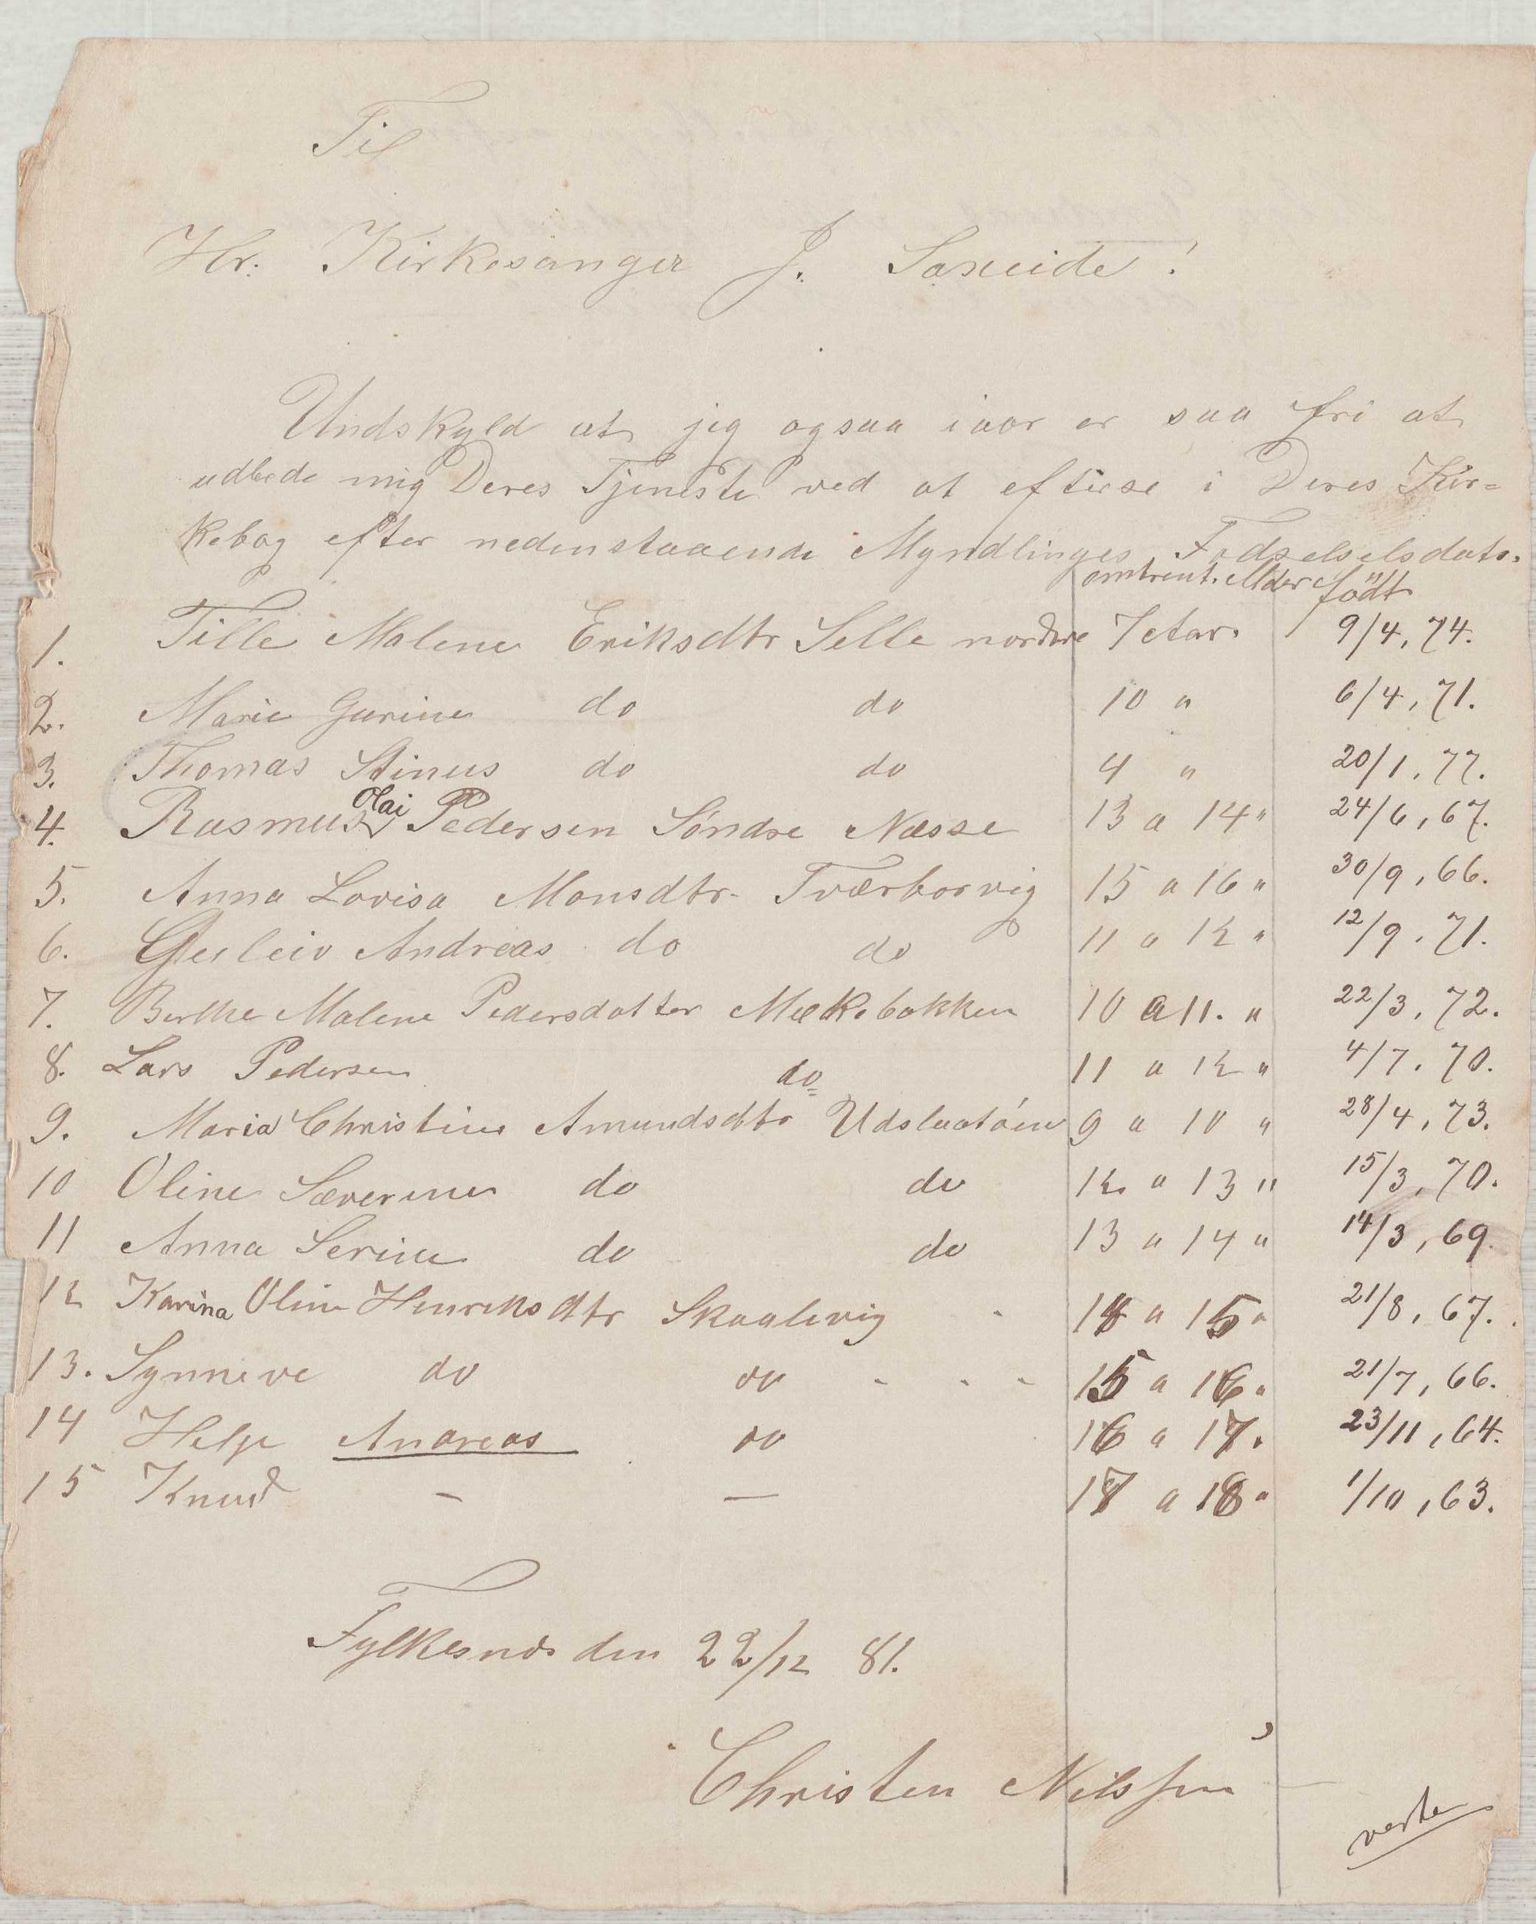 Til
Hr. Kirkesanger J. Saxeide!
Undskyld at jeg ogsaa iaar er saa fri at
udbede mig Deres Tjeneste ved at efterse i Deres Kir=
kebog efter nedenstaaende Myndlinges Fødselselsdato.
omtrent. Alder födt
1. Tille Malene Eriksdtr Selle nordre 7 Aar. 9/4, 74.
2. Marie Gurine do do 10 " 6/4, 71.
3. Thomas Stinus do do 4 " 20/1, 77.
4. Rasmus Olai Pedersen Søndre Næsse 13 a 14 " 24/6, 67.
5. Anna Lovisa Monsdtr. Tværborvig 15 a 16 " 30/9, 66.
6. Guleiv Andreas do do 11 a 12 " 12/9, 71.
7. Berthe Malene Pedersdatter Mækebakken 10 a 11. " 22/3, 72.
8. Lars Pedersen do 11 a 12 " 4/7, 70.
9. Maria Christine Amundsdtr Udslaatøen 9 a 10 " 28/4, 73.
10 Oline Severine do do 12 a 13 " 15/3, 70.
11 Anna Serine do do 13 a 14 " 14/3, 69.
12 Karina Oline Henriksdtr Skaalevig 14 a 15 " 21/8, 67.
13. Synneve do do 15 a 16 " 21/7, 66.
14 Helje Andreas do 16 a 17. 23/11, 64.
15 Knud — — 17 a 18 " 1/10, 63.
Fylkesnæs den 22/12 81.
Christen Nilssen
verte